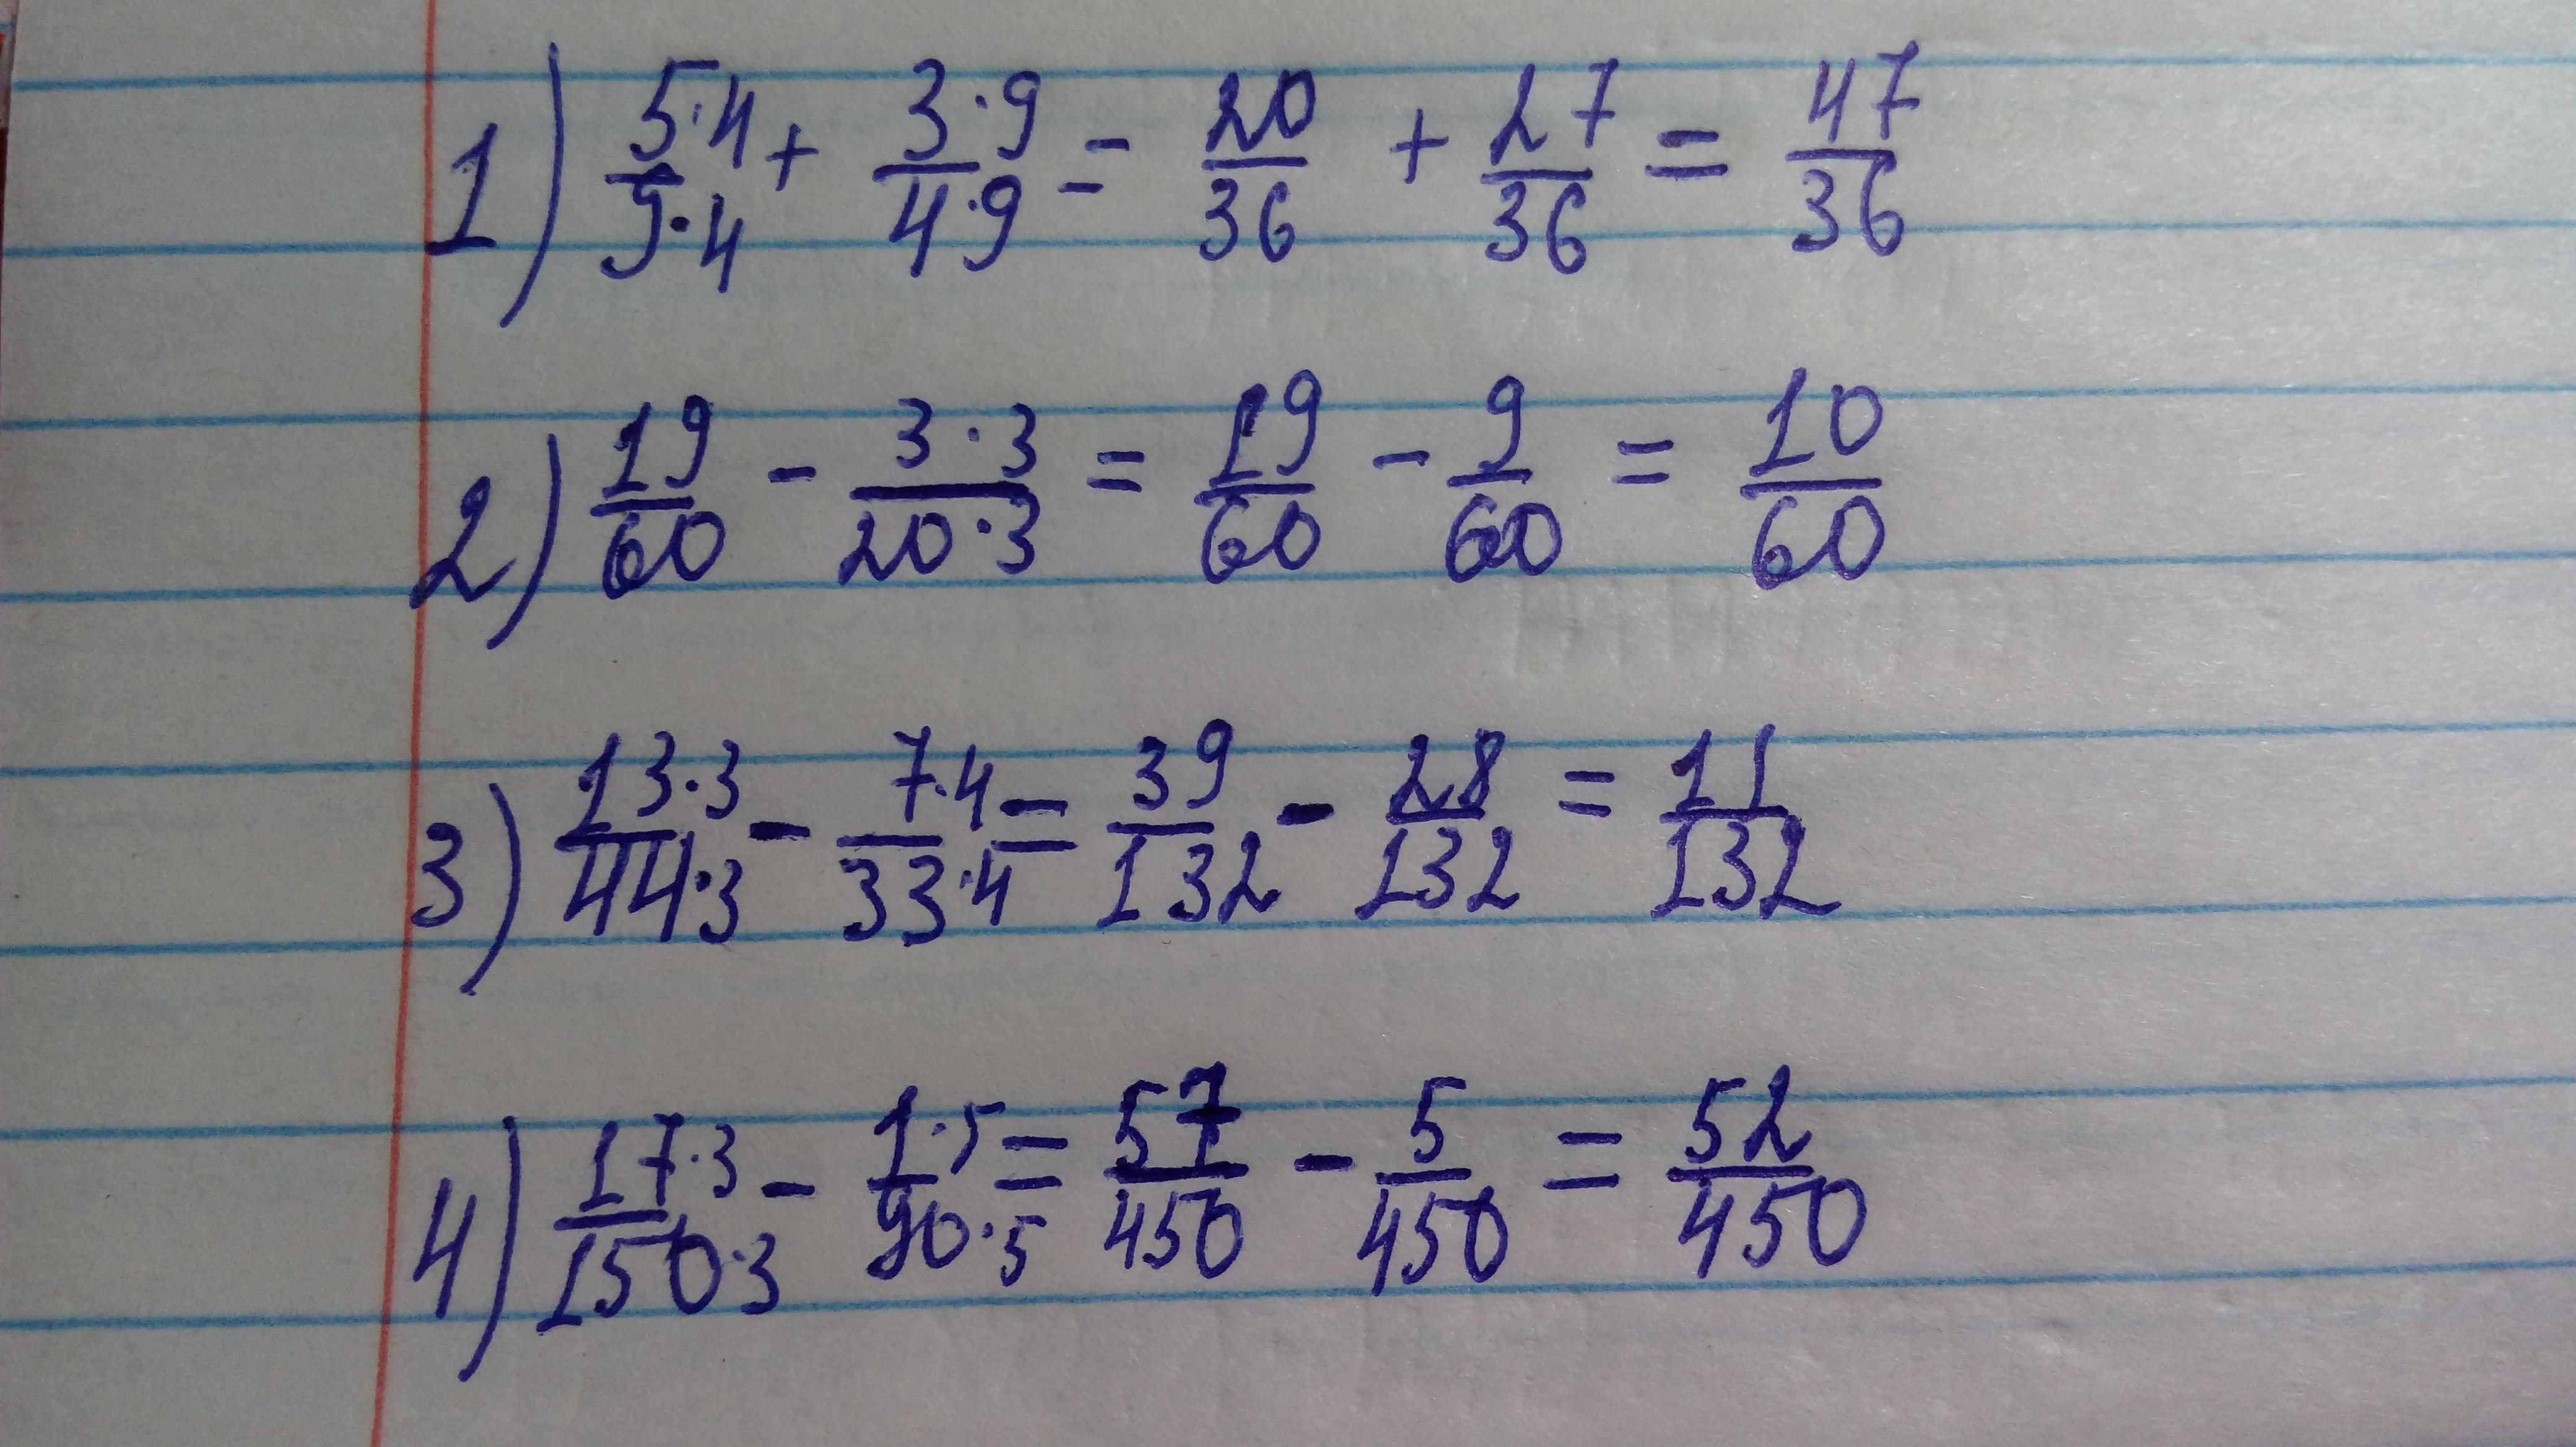 1) 5·4/9·4 + 3·9/4·9 = 20/36 + 27/36 = 47/36
2) 19/60 - 3·3/20·3 = 19/60 - 9/60 = 10/60
3) 13·3/44·3 - 7·4/33·4 = 39/132 - 28/132 = 11/132
4) 17·3/150·3 - 1·5/90·5 = 57/450 - 5/450 = 52/450